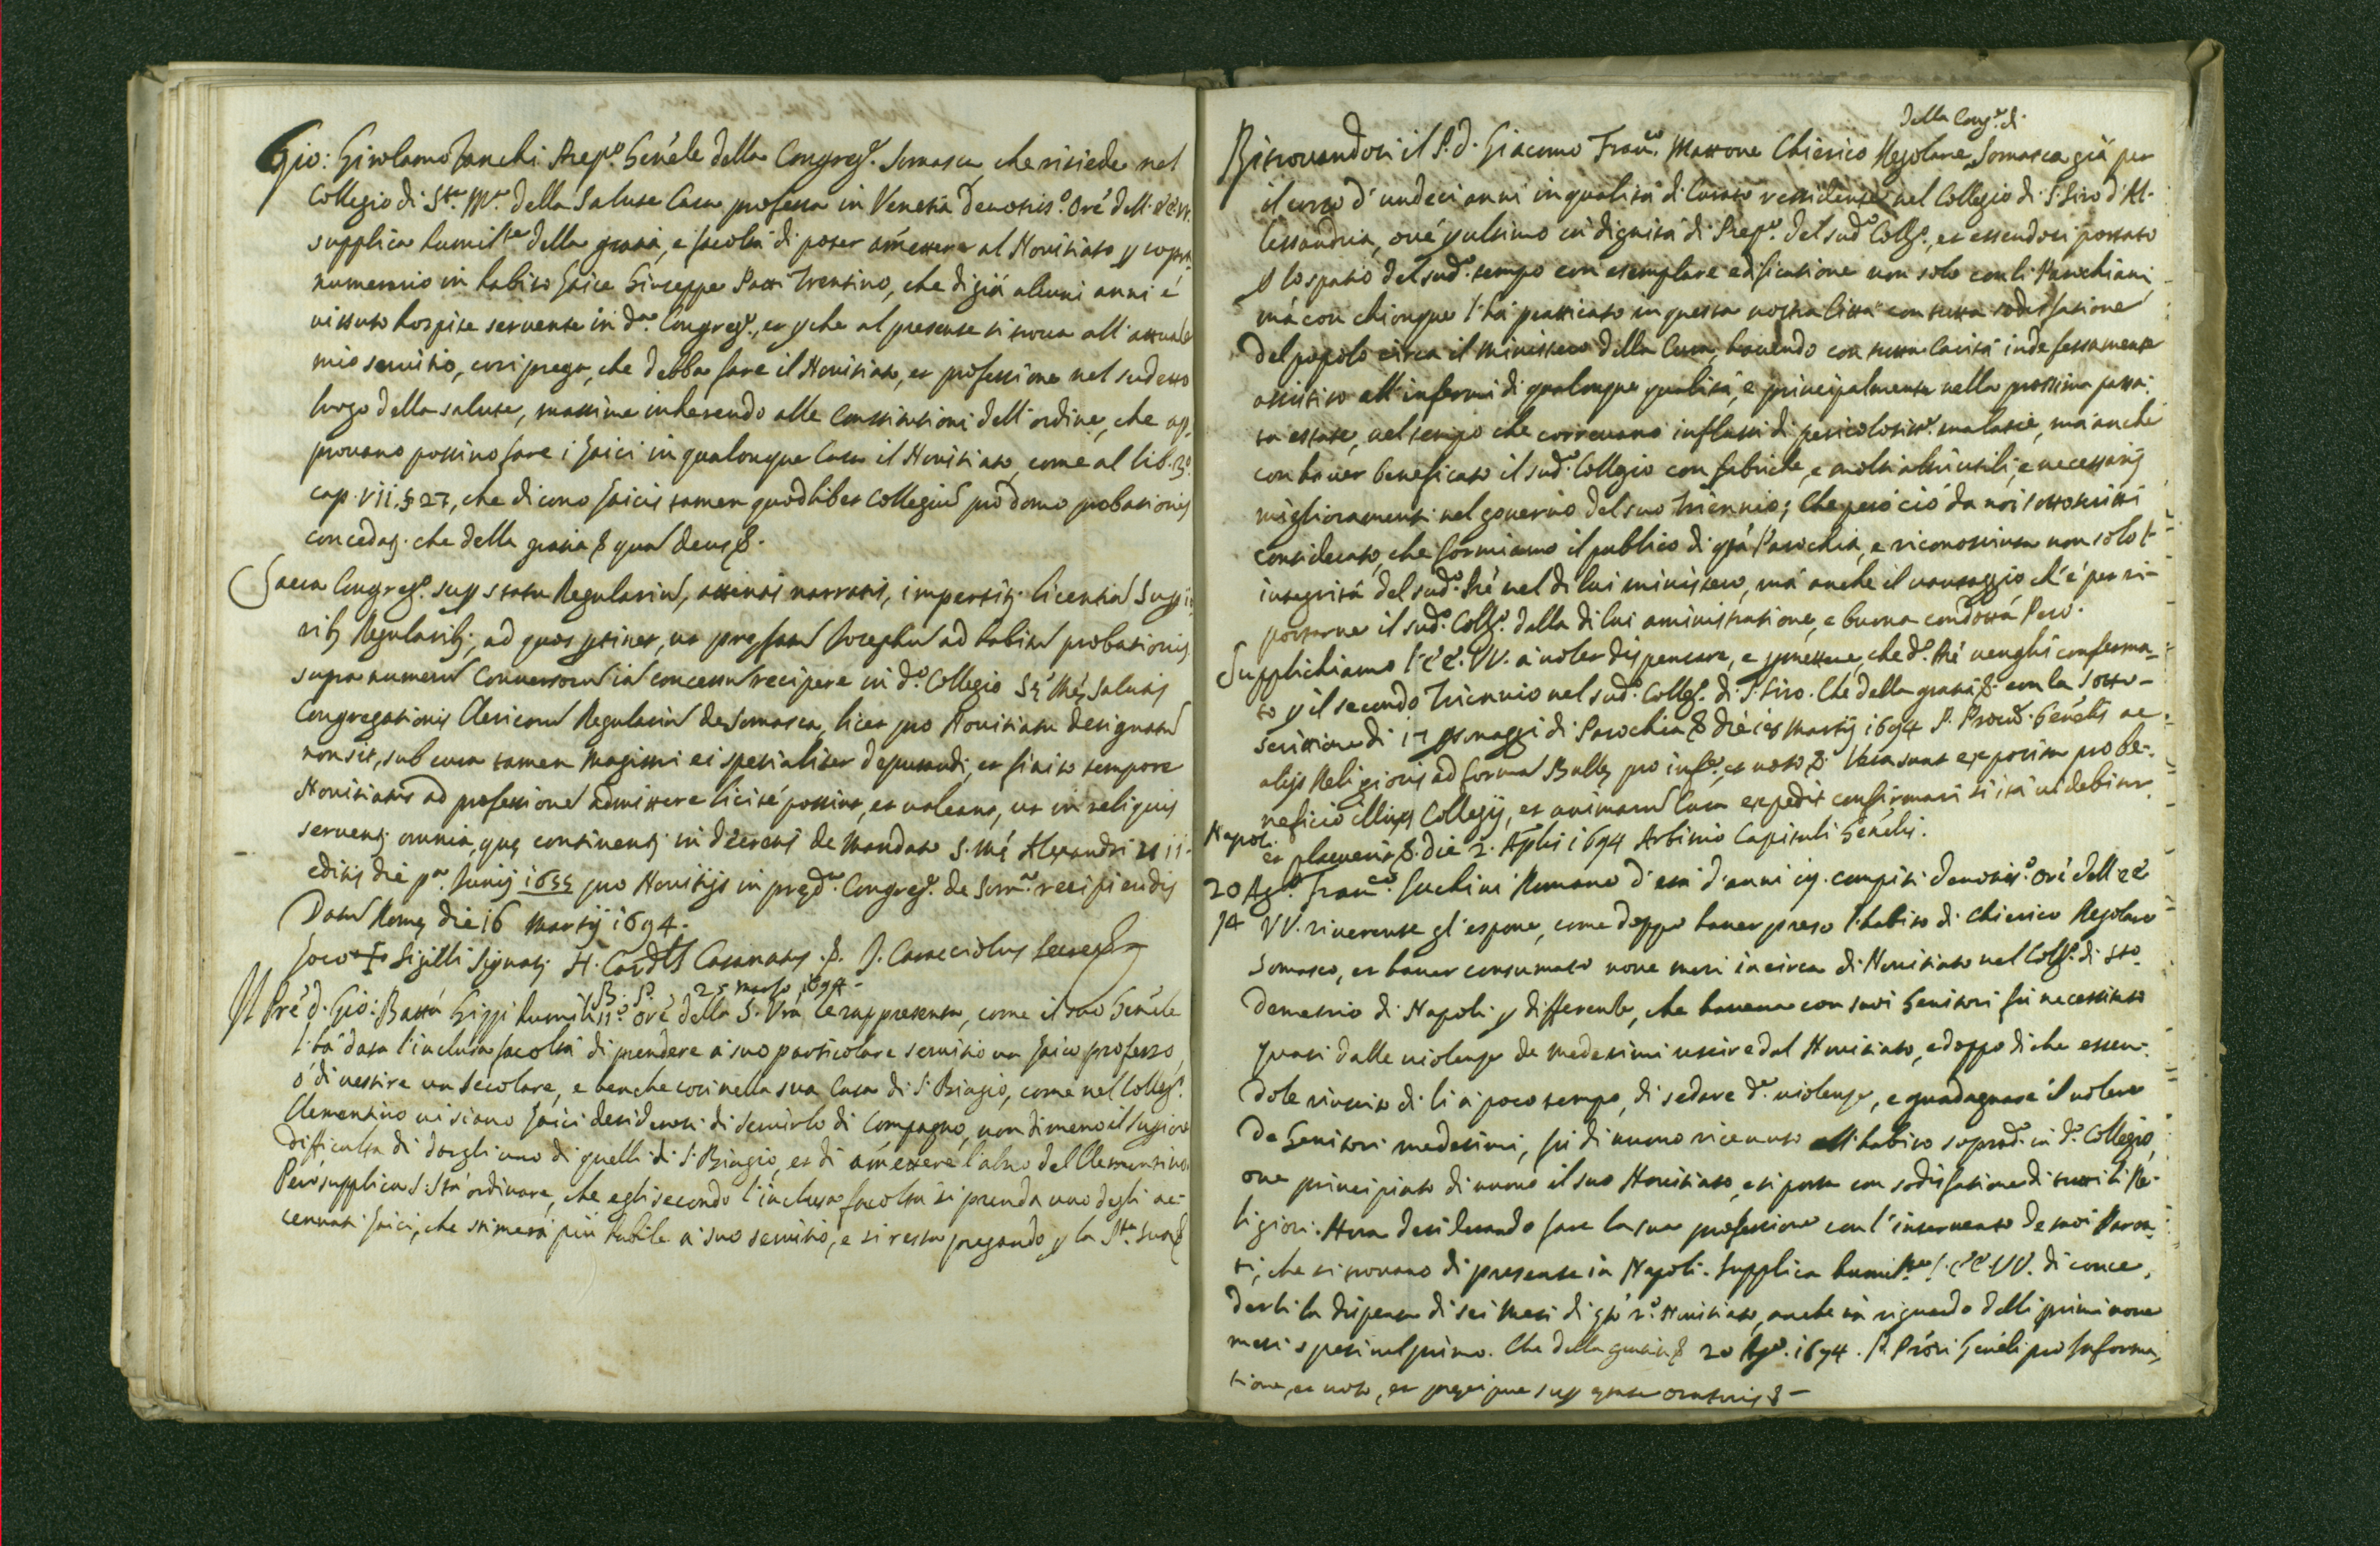 Gio: Girolamo Zanchi Prep.º Gen̄ele della Congreg.ᵉ Somasca, che risiede nel
Collegio di S.ᵗᵃ M.ᵃ della Salute Casa professa in Venetia devotiss.º Ore dell' EE. VV.
supplica humil.ᵗᵉ della gratia, e facoltà di poter am̄ettere al Novitiato p sopra
numerario in habito Laico Giuseppe Patti Trentino, che di già alcuni anni è
vissuto hospite servente in d.ᵃ Congreg.ᵉ, et p che al presente si trova all' attuale
mio servitio, così prega, che debba fare il Novitiato, et professione nel sudetto
luogo della salute, massime inherendo alle Constitutioni dell' ordine, che ap-
provano possino fare i laici in qualonque Casa il Novitiato, come al lib. 3º
cap. VII. § 27, che dicono Laicis tamen quodlibet Collegiu pro domo probationis
concedat. che della gratia & quam Deus &.
Sacra Congreg.º sup statu Regulariu, attentis narratis, impertit licentia Superio
rib Regularib, ad quos ptinet, ut prefatu Josephu ad habitu probationis
supra numeru Conversoru in concessu recipere in d.º Collegio S. M. Salutis
Congregationis Clericoru Regulariu de Somasca, licet pro Novitiatu designatu
non sit, sub cura tamen Magistri ei spetialiter deputandi, et finito tempore
Novitiatus ad professione admittere licitè possint, et valeant, ut in reliquis
servent omnia, que continent in decretis de Mandato S. M. Alexandri VII
editis die p.ᵃ Junij 1655 pro Novitijs in pred.ᵃ Congreg.ᵉ de Som.ᵃ recipiendis
Datu Rome die 16 Martij 1694.
Loco + Sigilli Signati H. Cardlis Casanatus &. J. Caracciolus Secres
B. P. 25 marzo 1694 -
Il Prē d. Gio: Batta Gippi humiliss.º ore della S. Vra le rappresenta, come il suo Gen̄ele
l' ha data l'inclusa facoltà di prendere a suo particolare servitio un laico professo,
o di vestire un secolare, e benche così nella sua Casa di S. Biagio, come nel Colleg.º
Clementino vi siano laici desiderosi di servirlo di Compagno, non di meno il Superiore
difficulta di dargli uno di quelli di S. Biagio, et di am̄ettere l'altro del Clementino
Però supplica S. Stà ordinare, che egli secondo l'inclusa facoltà si prenda uno degli ac-
cennati laici, che stimerà più habile a suo servitio, e si resta pregando p la S.ᵗᵃ sua &
della Cong.ᵉ di
Ritrovandosi il P. D. Giacomo Fran.ᶜᵒ Massone Chierico Regolare Somasca già per
il corso d' undeci anni in qualità di Curato residente nel Collegio di S. Siro d' Al-
lessandria, ove p ultimo in dignità di Prep.º del sud.º Coll.º, et essendosi portato
p lo spatio del sud.º tempo con esemplare edificatione non solo con li Parochiani
mà con chionque l' hà praticato in questa nostra Città con tutta sodisfatione
del popolo circa il ministero della Cura, havendo con tutta Carità indefessamente
assistito all' infermi di qualonque qualità, e principalmente nella prossima passa-
ta estate, nel tempo che correvano influssi di pericolosiss.ᵉ malatie, mà anche
con haver beneficato il sud.º Collegio con fabriche, e molti altri utili, e necessarij
miglioramenti nel governo del suo Triennio; Che però ciò da noi sottoscritti
considerato, che formiamo il publico di qta Parochia, e riconosciuta non solo l'
integrità del sud.º Prē nel di lui ministero, mà anche il vantaggio ch' è per ri-
portarne il sud.º Coll.º dalla di lui aministratione, e buona condottà Però.
Supplichiamo l' EE. VV. a voler dispensare, e pmettere, che d.º Prē venghi conferma-
to p il secondo Triennio nel sud.º Colleg.º di S. Siro. Che della gratia &. con la sotto-
scrittione di 17 psonaggi di Parochia & die 19 Martij 1694 P. Procu. Genēlis ac
alijs Religionis ad forma Bulle pro infᵉ, et voto &. Vera sunt exposita pro be-
neficio illius Collegij, et animaru Cura expedit confirmari si ità videbitur
et placuerit &. die 2. Aplis 1694 Arbitrio Capituli Genēlis.
Napoli
20 Ag.º
94
Fran.ᶜᵒ Luchini Romano d' età d' anni 19. compiti devotiss.º ore dell' EE
VV. riverente gl' espone, come doppo haver preso l' habito di Chierico Regolare
Somasco, et haver consumato nove mesi incirca di Novitiato nel Coll.º di Sto
Demetrio di Napoli p differenze, che haveva con suoi Genitori fù necessitato
quasi dalle violenze de medesimi uscire dal Novitiato, e doppo di che essen-
dole riuscito di li a poco tempo, di sedare d.ᵉ violenze, e guadagnare il volere
de Genitori medesimi, fù di nuovo ricevuto all' habito soprad.º in d.º Collegio,
ove principiato di nuovo il suo Novitiato, e si porta con sodisfatione di tutti li Re-
ligiosi. Hora desiderando fare la sua professione con l' intervento de suoi Paren-
ti, che si trovano di presente in Napoli. Supplica humil.ᵗᵉ l' EE. VV. di conce-
derli la dispensa di sei mesi di qto 2.º Novitiato, anche in riguardo delli primi nove
mesi spesi nel primo. Che della gratia & 20 Ag.º 1694. P. Prōri Genēli pro Informa-
tione, et voto, et precipue sup etate oratoris & -